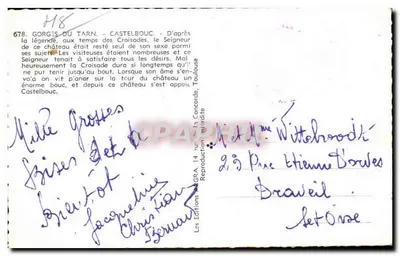 H8
678. GORGES DU TARN. - CASTELBOUC. - D'après
la légende, aux temps des Croisades, le Seigneur
de ce château était resté seul de son sexe parmi
ses sujets. Les visiteuses étaient nombreuses et ce
Seigneur tenait à satisfaire tous les désirs. Mal
heureusement la Croisade dura si longtemps qu'il
ne put tenir jusqu'au bout. Lorsque son âme s'en-
vola on vit planer sur la tour du château un
énorme bouc, et depuis ce château s'est appelé
Castelbouc.
Mille grosses
Bises et à
Bientôt
Jacqueline
Christian
Bernard
Les Editions 14 Concorde, Toulouse
Reproduction interdite
M et Mme Wittebroodt
23 Rue Etienne Dorves
Draveil
Set Oise